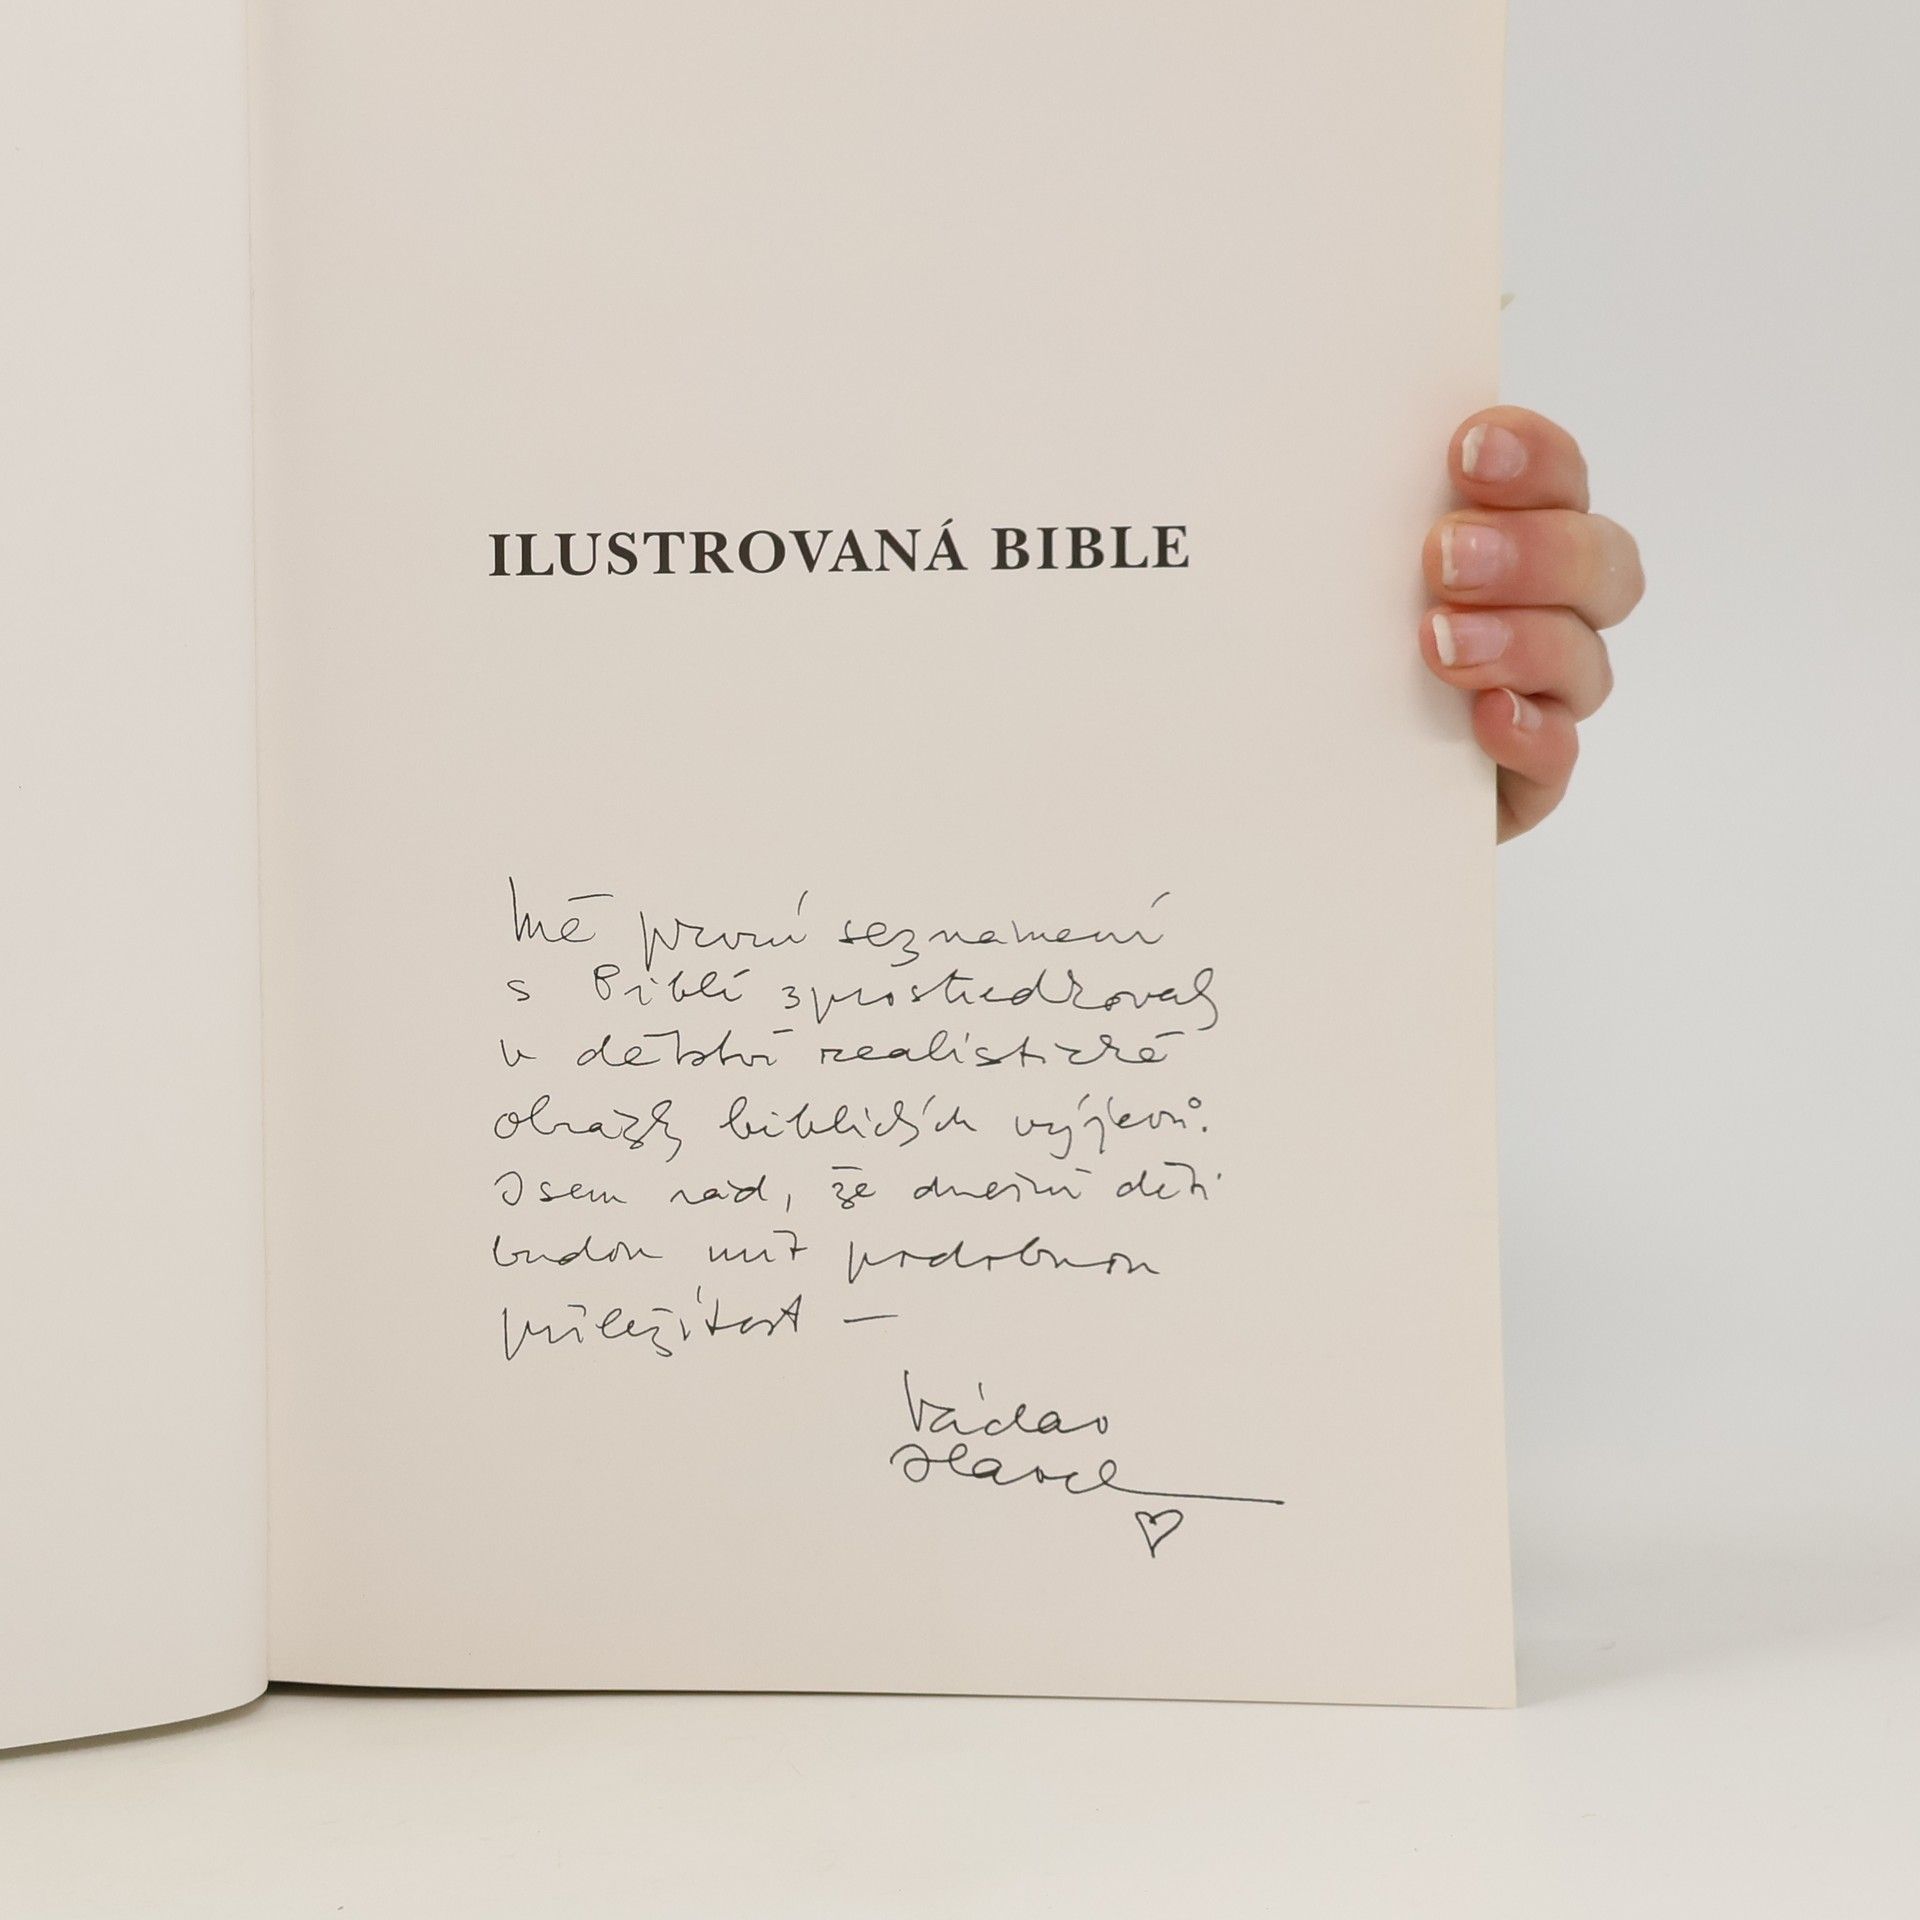 ILUSTROVANÁ BIBLE
Mé první seznamení
s Biblí zprostředkovaly
v dětství realistické
obrázky biblických výjevů.
Jsem rád, že dnešní děti
budou mít podobnou
příležitost —
Václav
Havel